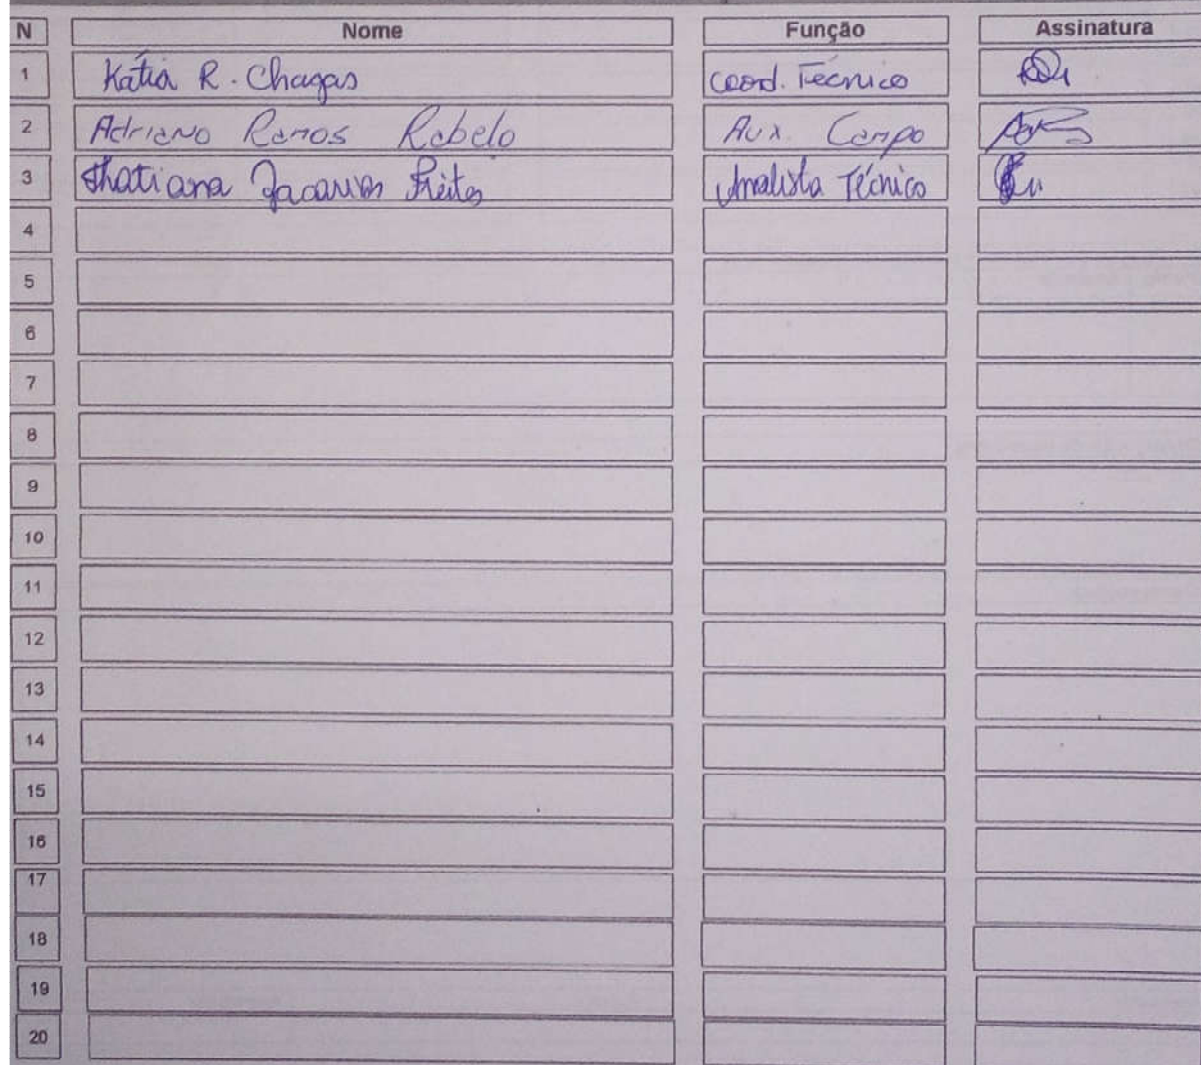 N Nome Função Assinatura
1 Kátia R. Chagas Coord. Técnico
2 Adriano Ramos Rabelo Aux. Campo
3 Thatiana Freitas Analista Técnico
4
5
6
7
8
9
10
11
12
13
14
15
16
17
18
19
20